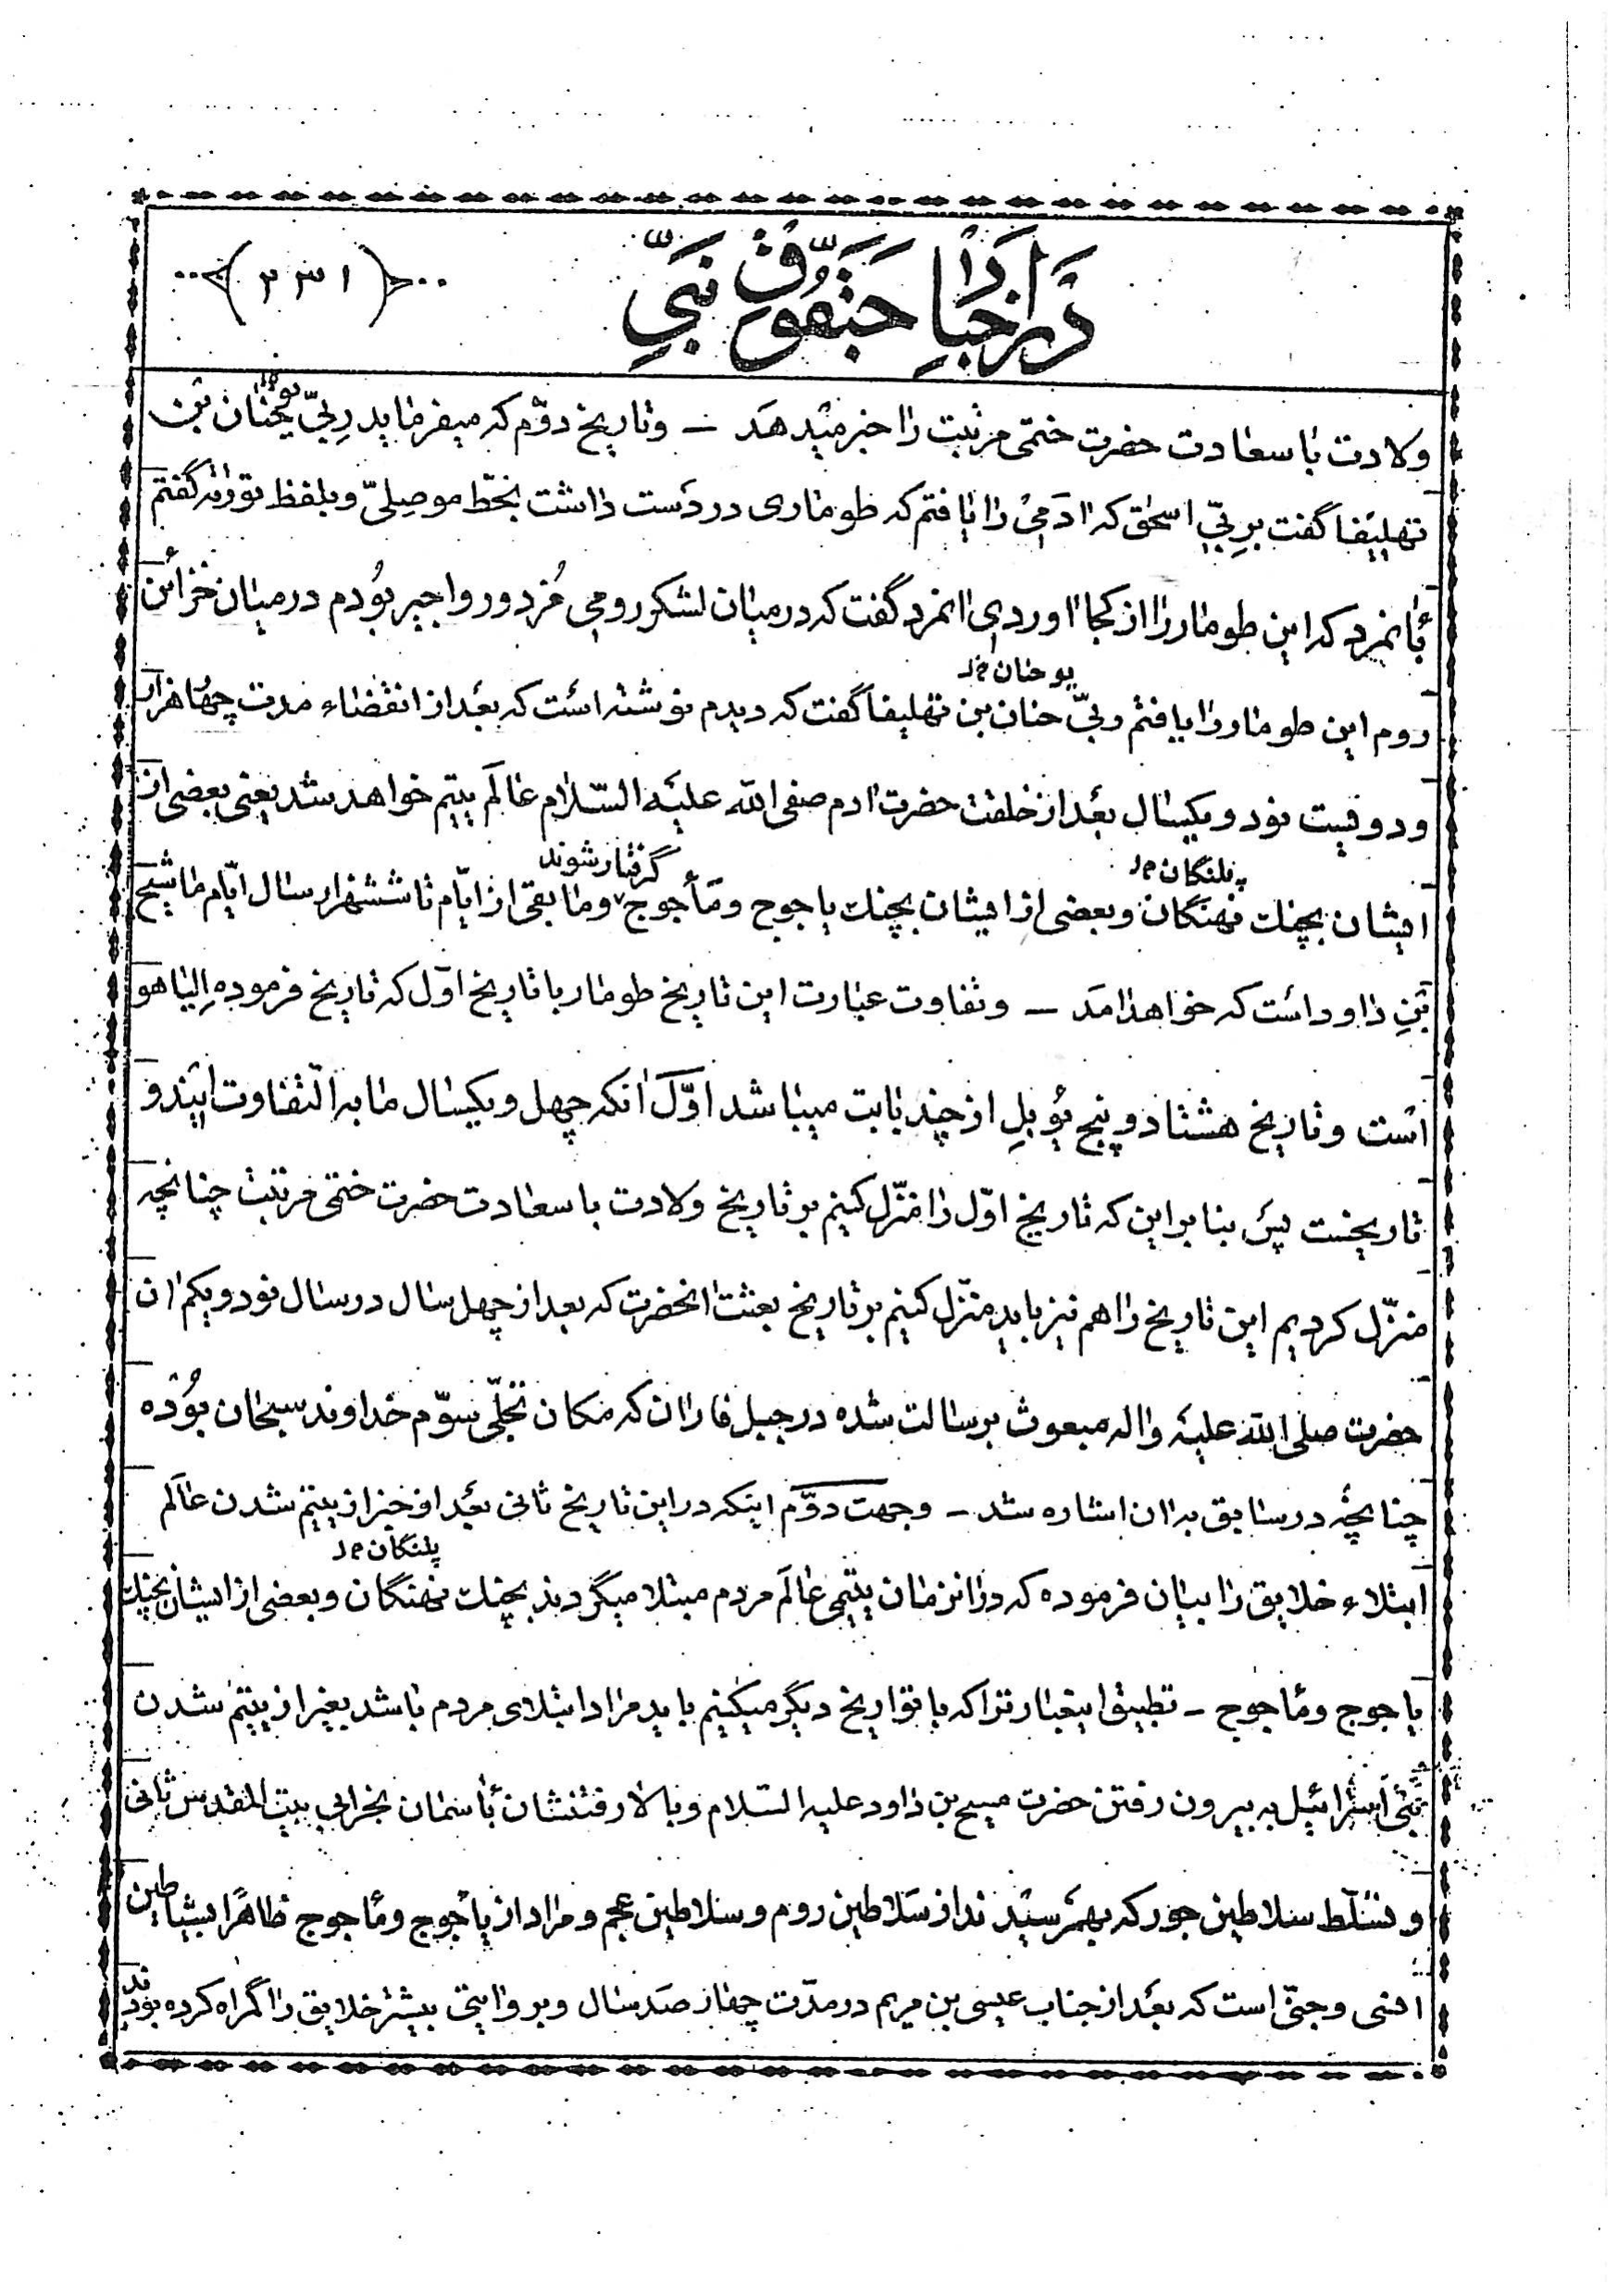 در اخبار حبقوق نبی
(۲۳۱)
ولادت باسعادت حضرت ختمی مرتبت را خبر میدهد – و تاریخ دوّم که میفرماید رِبیّ یوحنان بن
تهلیفا گفت برِبیّ اسحٰق که ادمی را یافتم که طوماری در دست داشت بخطّ موصِلیّ و بلفظ توراة گفتم
بانمرد که این طومار را از کجا اوردی انمرد گفت که در میان لشکر رومی مُزدور و اجیر بُودم در میان خزائن
یوحنان م‌د
روم این طومار را یافتم ربیّ حنان بن تهلیفا گفت که دیدم نوشته است که بعد از انقضاء مدت چهار هزار
و دویست نود و یکسال بعد از خلقت حضرت ادم صفی الله علیه السّلام عالَم یتیم خواهد شد یعنی بعضی از
پلنگان م‌د
گرفتار شوند
ایشان بچنك نهنگان و بعضی از ایشان بچنك یاجوج و مأجوج و ما بقی از ایّام تا ششهزار سال ایّام ماشیح
بَنِ داود است که خواهد امد – و تفاوت عبارت این تاریخ طومار با تاریخ اوّل که تاریخ فرموده اِلیاهو
است و تاریخ هشتاد و پنج یُوبلِ از چند بابت میباشد اوّل انکه چهل و یکسال ما به التفاوت ایندو
تاریخست پس بنابر این که تاریخ اوّل را منزّل کنیم بر تاریخ ولادت باسعادت حضرت ختمی مرتبت چنانچه
منزّل کردیم این تاریخ را هم نیز باید منزّل کنیم بر تاریخ بعثت انحضرت که بعد از چهل سال در سال نود و یکم ان
حضرت صلی الله علیه و اله مبعوث برسالت شده در جبل فاران که مکان تجلّی سوّم خداوند سبحان بُوده
چنانچه در سابق بدان اشاره شد – و جهت دوّم اینکه در این تاریخ ثانی بعد از خبر از یتیم شدن عالَم
پلنگان م‌د
ابتلاء خلایق را بیان فرموده که در انزمان یتیمی عالَم مردم مبتلا میگردند بچنك نهنگان و بعضی از ایشان بچنك
یاجوج و مأجوج – تطبیق اینعبارتراکه با تواریخ دیگر میکنیم باید مراد ابتلای مردم باشد بغیر از یتیم شدن
بنی اسرائیل به بیرون رفتن حضرت مسیح بن داود علیه السّلام و بالا رفتنشان باسمان بخرابی بیت المقدس ثانی
و تسلّط سلاطین جور که بهمرسیدند از سلاطین روم و سلاطین عجم و مراد از یاجوج و مأجوج ظاهراً بشیاطین
انسی و جنّی است که بعد از جناب عیسی بن مریم در مدّت چهار صد سال و بروایتی بیشتر خلایق را گمراه کرده بودند